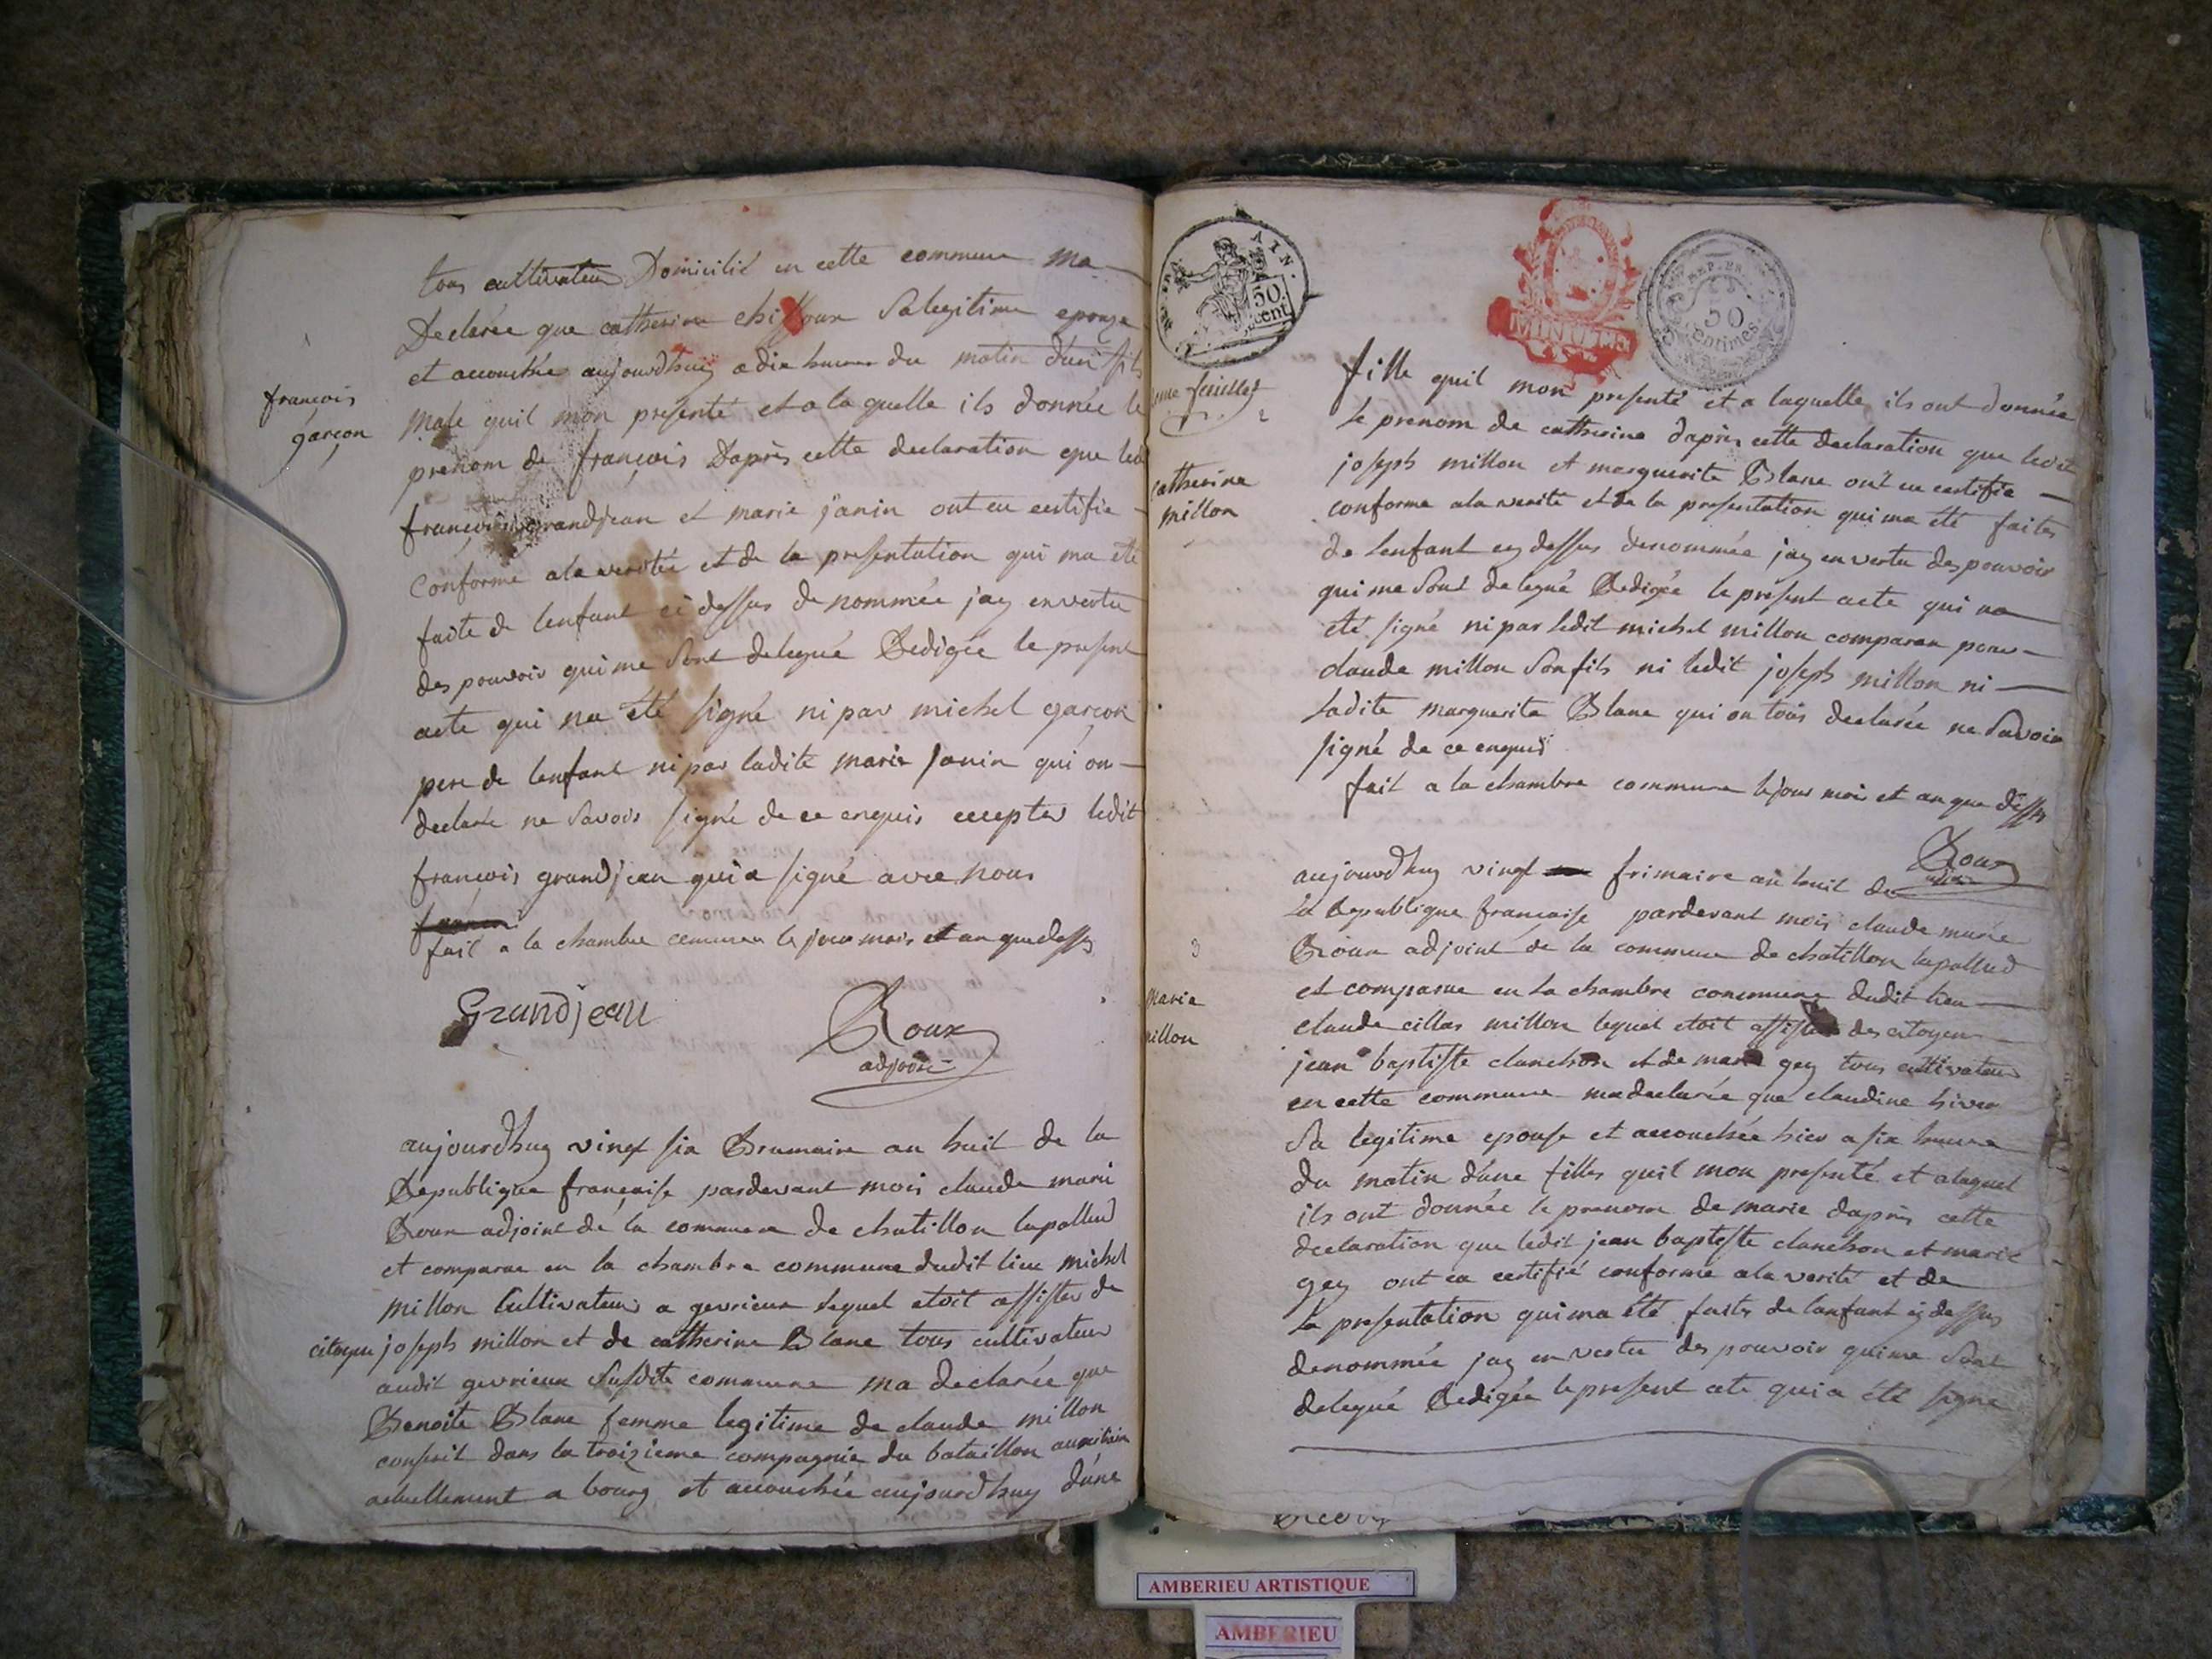 tous cultivateur Domicilié en cette commune ma
Declarée que catherine chiffoux Salegitime epouze
et accouchée aujourdhuy a dix heures du matin d'un fils
françois
garçon
male quil mon presenté et a la quelle ils donnée le
prenom de françois Daprès cette declaration que led
françois grandjean et marie janin ont eu certifie
conforme ala veritée et de la presentation qui ma eté
faite de lenfant ci dessus de nommée jay en vertu
des pouvoir qui me Sont delegué Redigée le present
acte qui na été signé ni par michel garçon
pere de lenfant ni par ladite marie janin qui on
declaré ne Savoir signé de ce enquis excepter ledit
françois grandjean qui a signé avec nous
fait a la chambre commun le jour mois et an que dessus
Grandjean
Roux
adjoint
aujourdhuy vingt six Brumaire an huit de la
Republique française pardevant moi claude marie
Roux adjoint de la commune de chatillon lapallud
et comparue en la chambre commune dudit lieu michel
millon Cultivateur a gevrieux lequel etoit assister de
citoyen joseph millon et de catherine Blanc tous cultivateur
audit gevrieux Susdite commune ma declarée que
Benoite Blanc femme legitime de claude millon
conscrit dans la troizieme compagnie du bataillon auxiliaire
actuellement a bourg et accouchée aujourdhuy d'une
AIN.
50.
cent
MINUTE
REP. FR.
50
centimes
feuillet
2
catherine
millon
fille quil mon presenté et a laquelle ils ont donnée
le prenom de catherine daprès cette declaration que ledit
joseph millon et marguerite Blanc ont eu certifie
conforme ala verité et de la presentation qui ma été faites
de lenfant cy dessus denommée jay en vertu des pouvoir
qui me Sont delegué Redigée le present acte qui na
été signé ni par ledit michel millon comparan pour
claude millon Son fils ni ledit joseph millon ni
ladite marguerite Blanc qui on tous declarée ne Savoir
signé de ce enquis
fait a la chambre commune le jour moi et an que dessus
Roux
adjoint
3
marie
millon
aujourdhuy vingt frimaire an huit de
La Republique française pardevant moi claude marie
Roux adjoint de la commune de chatillon lapallud
et comparue en la chambre commune dudit lieu
claude cillas millon lequel etoit assister des citoyen
jean baptiste clanchon et de marie gey tous cultivateur
en cette commune ma declarée que claudine hiver
Sa legitime epouse et accouchée hier a six heure
du matin d'une filles quil mon presenté et a laquel
ils ont donnée le prenom de marie daprès cette
declaration que ledit jean baptiste clanchon et marie
gey ont eu certifié conforme ala verité et de
la presentation qui ma été faite de lenfant cy dessus
denommée jay en vertu des pouvoir qui me Sont
delegué Redigée le present acte qui a été signé
AMBERIEU ARTISTIQUE
AMBERIEU